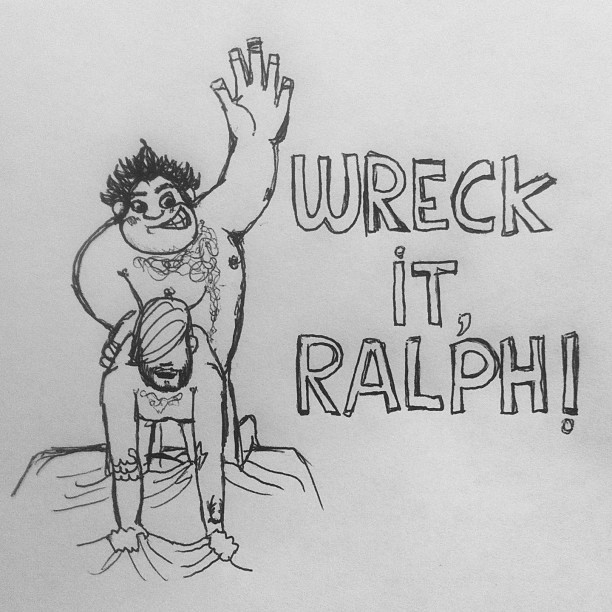 WRECK
iT,
RALPH!